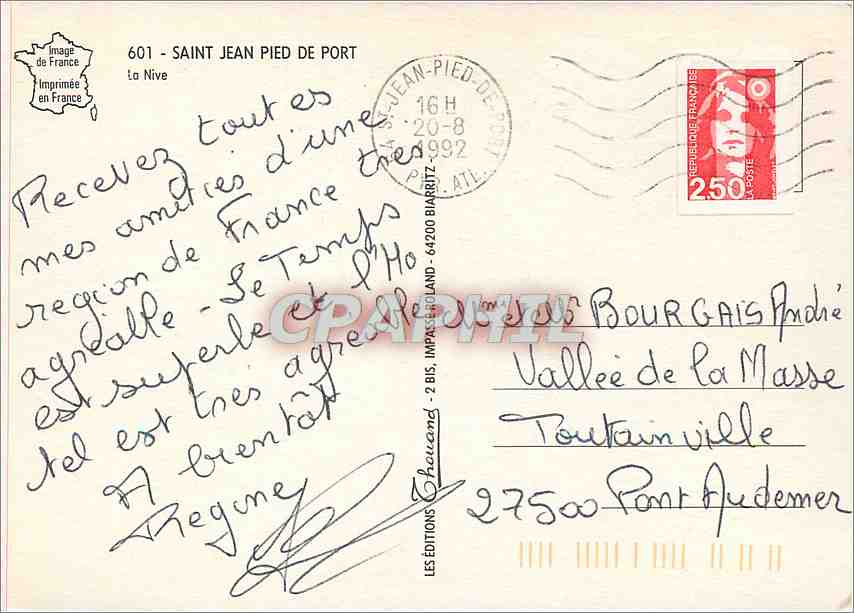 Image
de France
Imprimée
en France
601 - SAINT JEAN PIED DE PORT
La Nive
64 ST-JEAN-PIED-DE-PORT
16 H
20-8
1992
PYR. ATL.
REPUBLIQUE FRANÇAISE
2,50
LA POSTE
Recevez toutes
mes amitiés d'une
region de France tres
agréable - Le Temps
est superbe et l'Ho
tel est très agréable
A bientôt
Regine
LES ÉDITIONS Thouand - 2 BIS, IMPASSE ROLAND - 64200 BIARRITZ
CPAPHIL
BOURGAIS André
Vallée de la Masse
Toutainville
27500 Pont Audemer